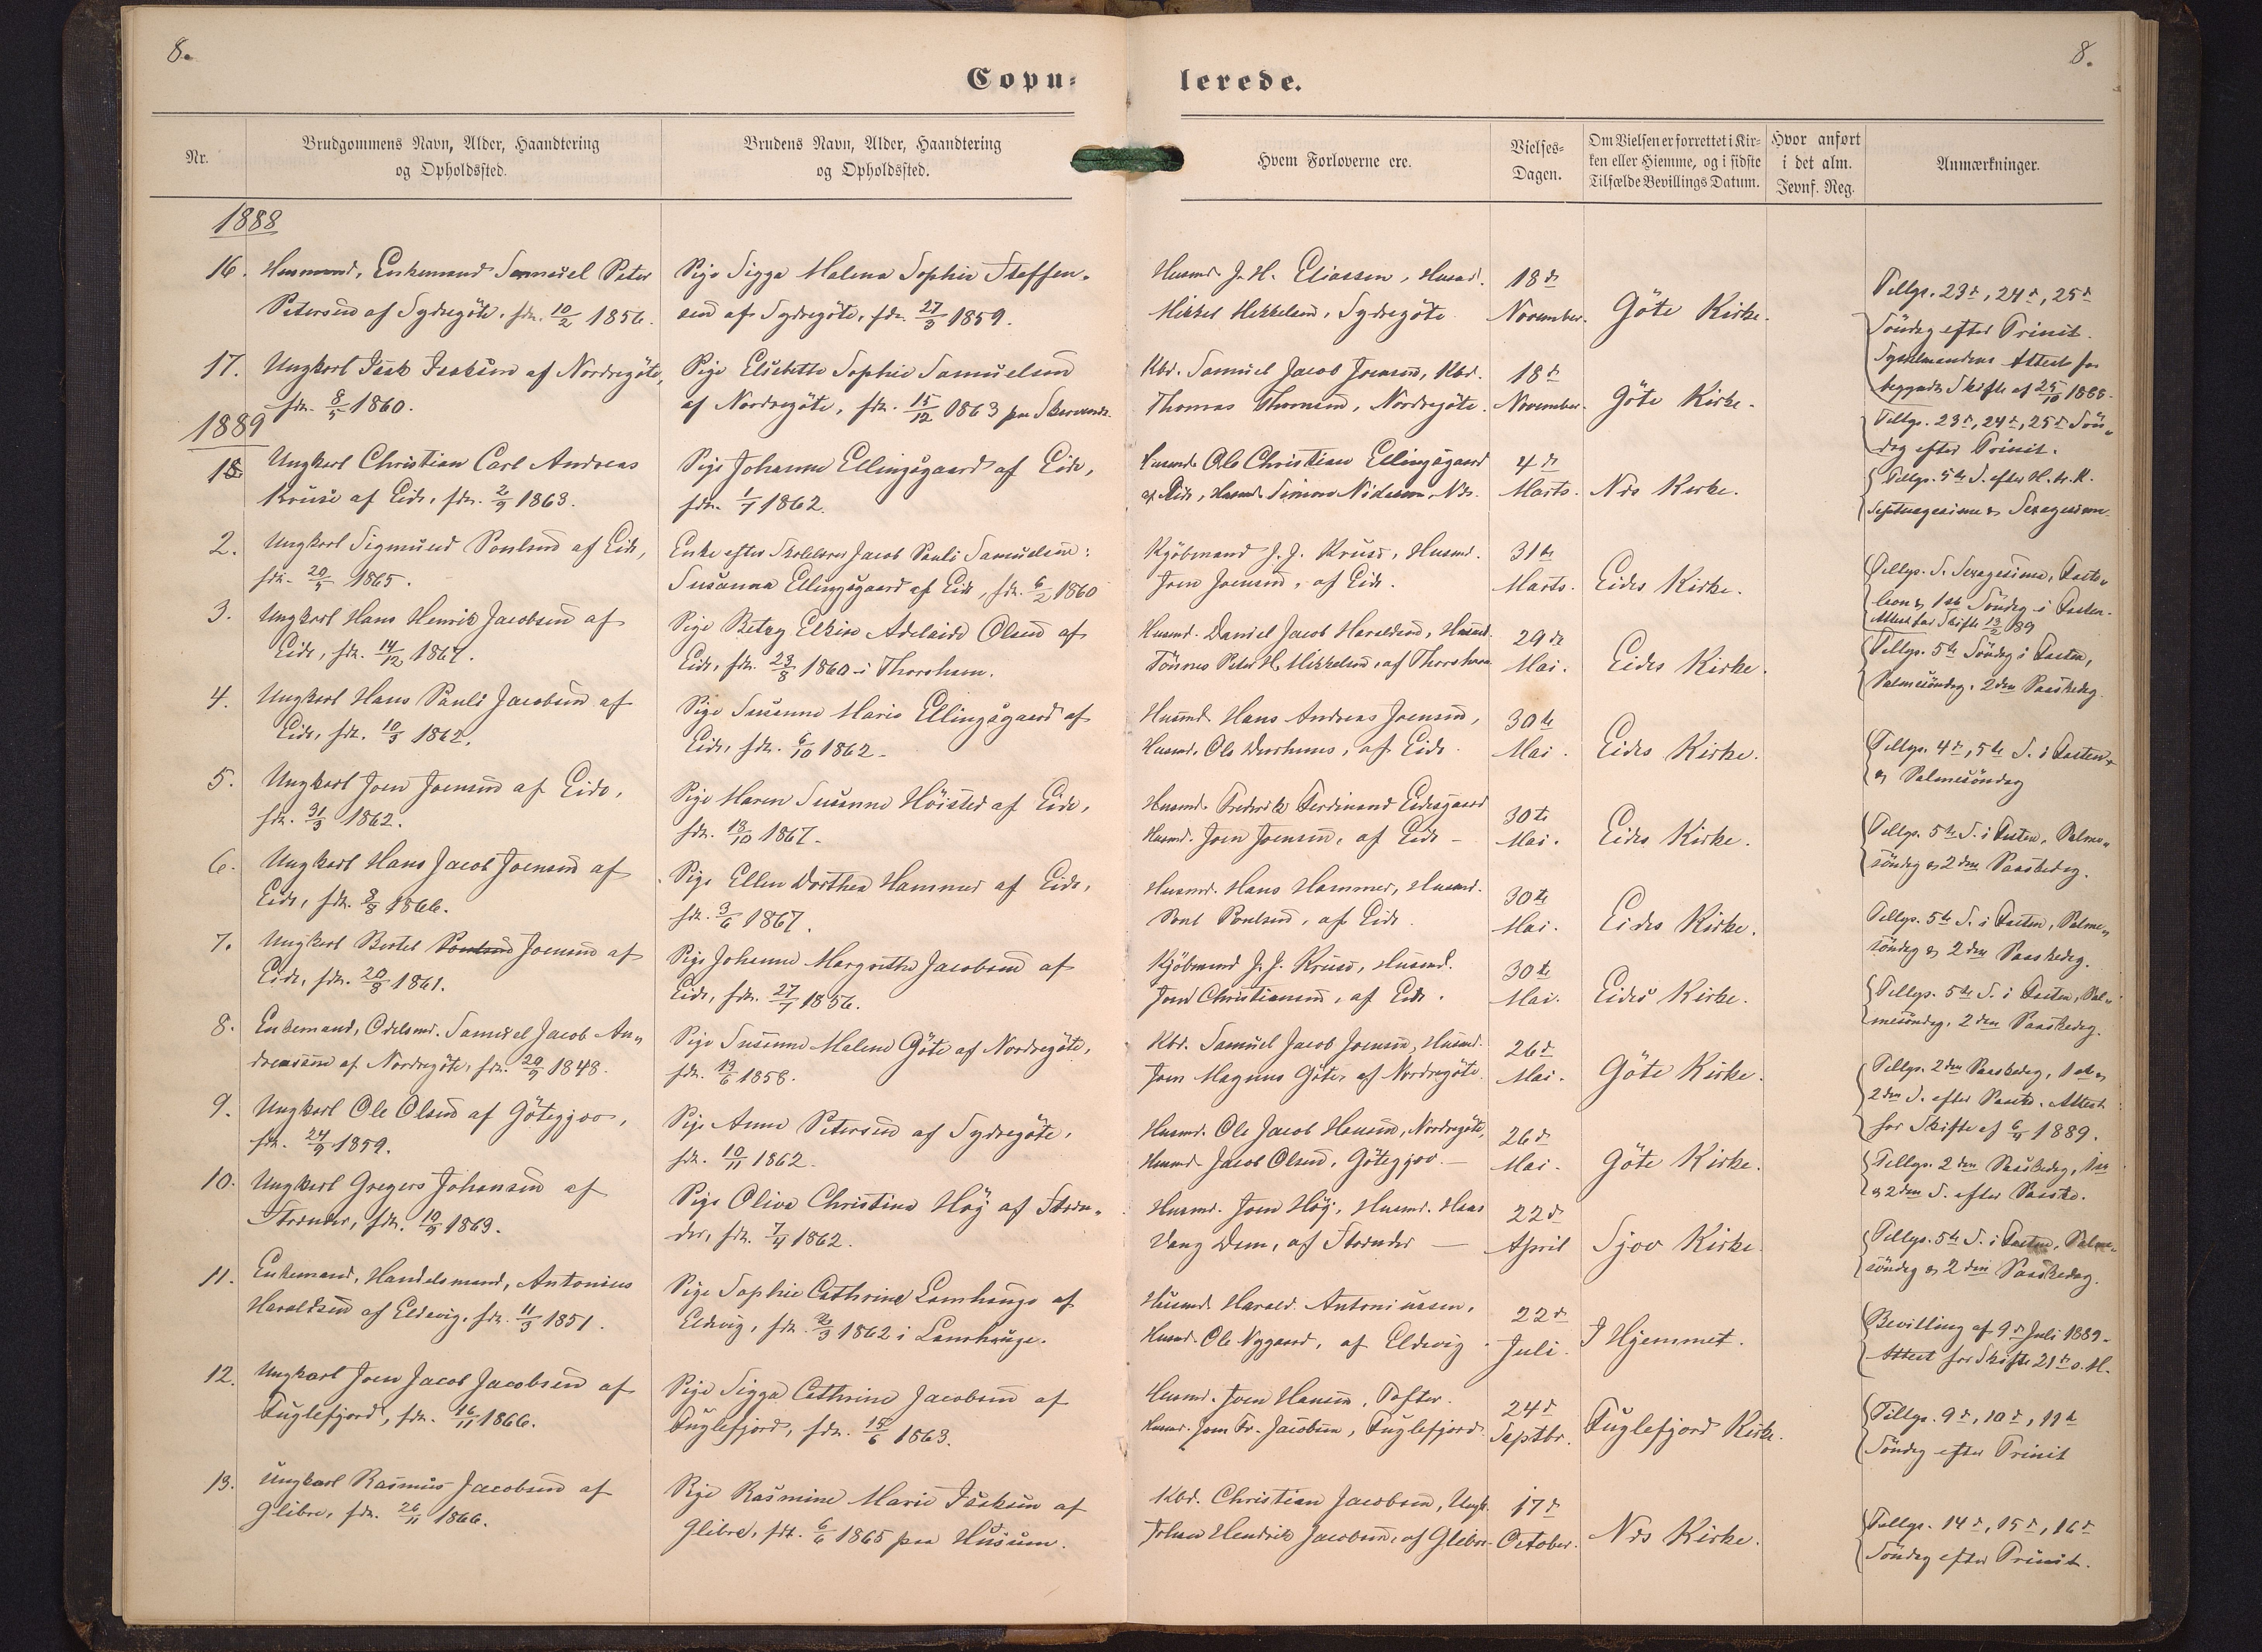 8.
8.
Copu-
lerede.
Nr.
Brudgommens Navn, Alder, Haandtering
og Opholdssted.
Brudens Navn, Alder, Haandtering
og Opholdssted.
Hvem Forloverne ere.
Vielses-
Dagen.
Om Vielsen er forrettet i Kir-
ken eller Hjemme, og i sidste
Tilfælde Bevillings Datum.
Hvor anført
i det alm.
Jevnf. Reg.
Anmærkninger.
1888
16. Husmand, Enkemand Samuel Peter
Petersen af Sydregöte, fdt. 10/2 1856.
Pige Sigga Malena Sophie Steffen-
sen af Sydregöte, fdt. 27/3 1859.
Husmd. J. H. Eliassen, Husmd.
Mikkel Mikkelsen, Sydregöte
18de
November.
Göte Kirke.
Tillyst 23de, 24de, 25de
Söndag efter Trinit.
17. Ungkarl Isak Isaksen af Nordregöte,
fdt. 8/5 1860.
Pige Elisabette Sophie Samuelsen
af Nordregöte, fdt. 15/12 1863 paa
Kbd. Samuel Jacob Joensen, Kbd.
Thomas Thomsen, Nordregöte.
18de
November.
Göte Kirke.
Sysselmandens Attest for
Skifte af 25/10 1888.
Tillyst 23de, 24de, 25de Sön-
dag efter Trinit.
1889
1. Ungkarl Christian Carl Andreas
Kruse af Eide, fdt. 2/9 1863.
Pige Johanne Ellingsgaard af Eide,
fdt. 1/7 1862.
Husmd. Ole Christian Ellingsgaard
af Eide, Husmd. Simon
4de
Marts.
Nds Kirke.
Tillyst 5te S. efter H. tr. K.
Septuagesima & Sexagesima
2. Ungkarl Sigmund Poulsen af Eide,
fdt. 20/5 1865.
Enke efter Skolelærer Jacob Pauli Samuelsen:
Susanna Ellingsgaard af Eide, fdt. 6/2 1860
Kjöbmand J. J. Kruse, Husmd.
Joen Joensen, af Eide.
31te
Marts.
Eides Kirke.
Tillyst S. Sexagesima, Faste-
lavn & 1ste Söndag i Fasten.
Attest for Skifte 13/2 89
3. Ungkarl Hans Henrik Jacobsen af
Eide, fdt. 14/12 1867.
Pige Betzy Elkine Adelaide Olsen af
Eide, fdt. 23/8 1860 i Thorshavn.
Husmd. Daniel Jacob Haraldsen, Husmd.
Tönnes Peter H. Mikkelsen, af Thorshavn
29de
Mai.
Eides Kirke.
Tillyst 5te Söndag i Fasten,
Palmesöndag, 2den Paaskedag.
4. Ungkarl Hans Pauli Jacobsen af
Eide, fdt. 10/3 1862.
Pige Susanne Marie Ellingsgaard af
Eide, fdt. 6/10 1862.
Husmd. Hans Andreas Joensen,
Husmd. Ole Durhuus, af Eide.
30te
Mai.
Eides Kirke.
Tillyst 4de, 5te S. i Fasten
og Palmesöndag
5. Ungkarl Joen Joensen af Eide,
fdt. 31/3 1862.
Pige Maren Susanne Höisted af Eide,
fdt. 18/10 1867.
Husmd. Frederik Ferdinand Eidesgaard
Husmd. Joen Joensen, af Eide
30te
Mai.
Eides Kirke.
Tillyst 5te S. i Fasten, Palme-
söndag & 2den Paaskedag.
6. Ungkarl Hans Jacob Joensen af
Eide, fdt. 8/8 1866.
Pige Ellen Dorthea Hammer af Eide,
fdt. 3/6 1867.
Husmd. Hans Hammer, Husmd.
Poul Poulsen, af Eide.
30te
Mai.
Eides Kirke.
Tillyst 5te S. i Fasten, Palme-
söndag & 2den Paaskedag.
7. Ungkarl Bertel Poulsen Joensen af
Eide, fdt. 20/8 1861.
Pige Johanne Margrethe Jacobsen af
Eide, fdt. 27/7 1856.
Kjöbmand J. J. Kruse, Husmd.
Joen Christiansen, af Eide.
30te
Mai.
Eides Kirke.
Tillyst 5te S. i Fasten, Pal-
mesöndag, 2den Paaskedag.
8. Enkemand, Odelsmd. Samuel Jacob An-
dreassen af Nordregöte, fdt. 20/9 1848.
Pige Susanne Malene Göte af Nordregöte,
fdt. 19/6 1858.
Kbd. Samuel Jacob Joensen, Husmd.
Joen Magnus Göte, af Nordregöte.
26de
Mai.
Göte Kirke.
Tillyst 2den Paaskedag, 1ste &
2den S. efter Paaske. Attest
for Skifte af 6/4 1889.
9. Ungkarl Ole Olsen af Götegjov,
fdt. 24/9 1859.
Pige Anne Petersen af Sydregöte,
fdt. 10/11 1862.
Husmd. Ole Jacob Hansen, Nordregöte,
Husmd. Jacob Olsen, Götegjov.
26de
Mai.
Göte Kirke.
Tillyst 2den Paaskedag, 1ste
& 2den S. efter Paaske.
10. Ungkarl Gregers Johansen af
Strender, fdt. 10/9 1869.
Pige Oliva Christina Höj af Stren-
der, fdt. 7/4 1862.
Husmd. Joen Höj, Husmd. Hans
Dam, af Strender
22de
April
Sjov Kirke
Tillyst 5te S. i Fasten, Palme-
söndag & 2den Paaskedag.
11. Enkemand, Handelsmand, Antonius
Haraldsen af Eldevig, fdt. 11/3 1851.
Pige Sophie Cathrine Lamhauge af
Eldevig, fdt. 2/3 1862 i Lamhauge.
Husmd. Harald Antoniussen,
Husmd. Ole Nygaard, af Eldevig
22de
Juli.
I Hjemmet.
Bevilling af 9de Juli 1889.
Attest for Skifte 21de s. M.
12. Ungkarl Joen Jacob Jacobsen af
Fuglefjord, fdt. 16/11 1866.
Pige Sigga Cathrine Jacobsen af
Fuglefjord, fdt. 15/6 1863.
Husmd. Joen Hansen, Tofter.
Husmd. Joen Fr. Jacobsen, Fuglefjord
24de
Septbr.
Fuglefjord Kirke.
Tillyst 9de, 10de, 11te
Söndag efter Trinit
13. Ungkarl Rasmus Jacobsen af
Glibre, fdt. 26/11 1866.
Pige Rasmine Marie Isaksen af
Glibre, fdt. 6/6 1865 paa Husum.
Kbd. Christian Jacobsen, Ungk.
Johan Hendrik Jacobsen, af Glibre
17de
October.
Nds Kirke.
Tillyst 14de, 15de, 16de
Söndag efter Trinit.